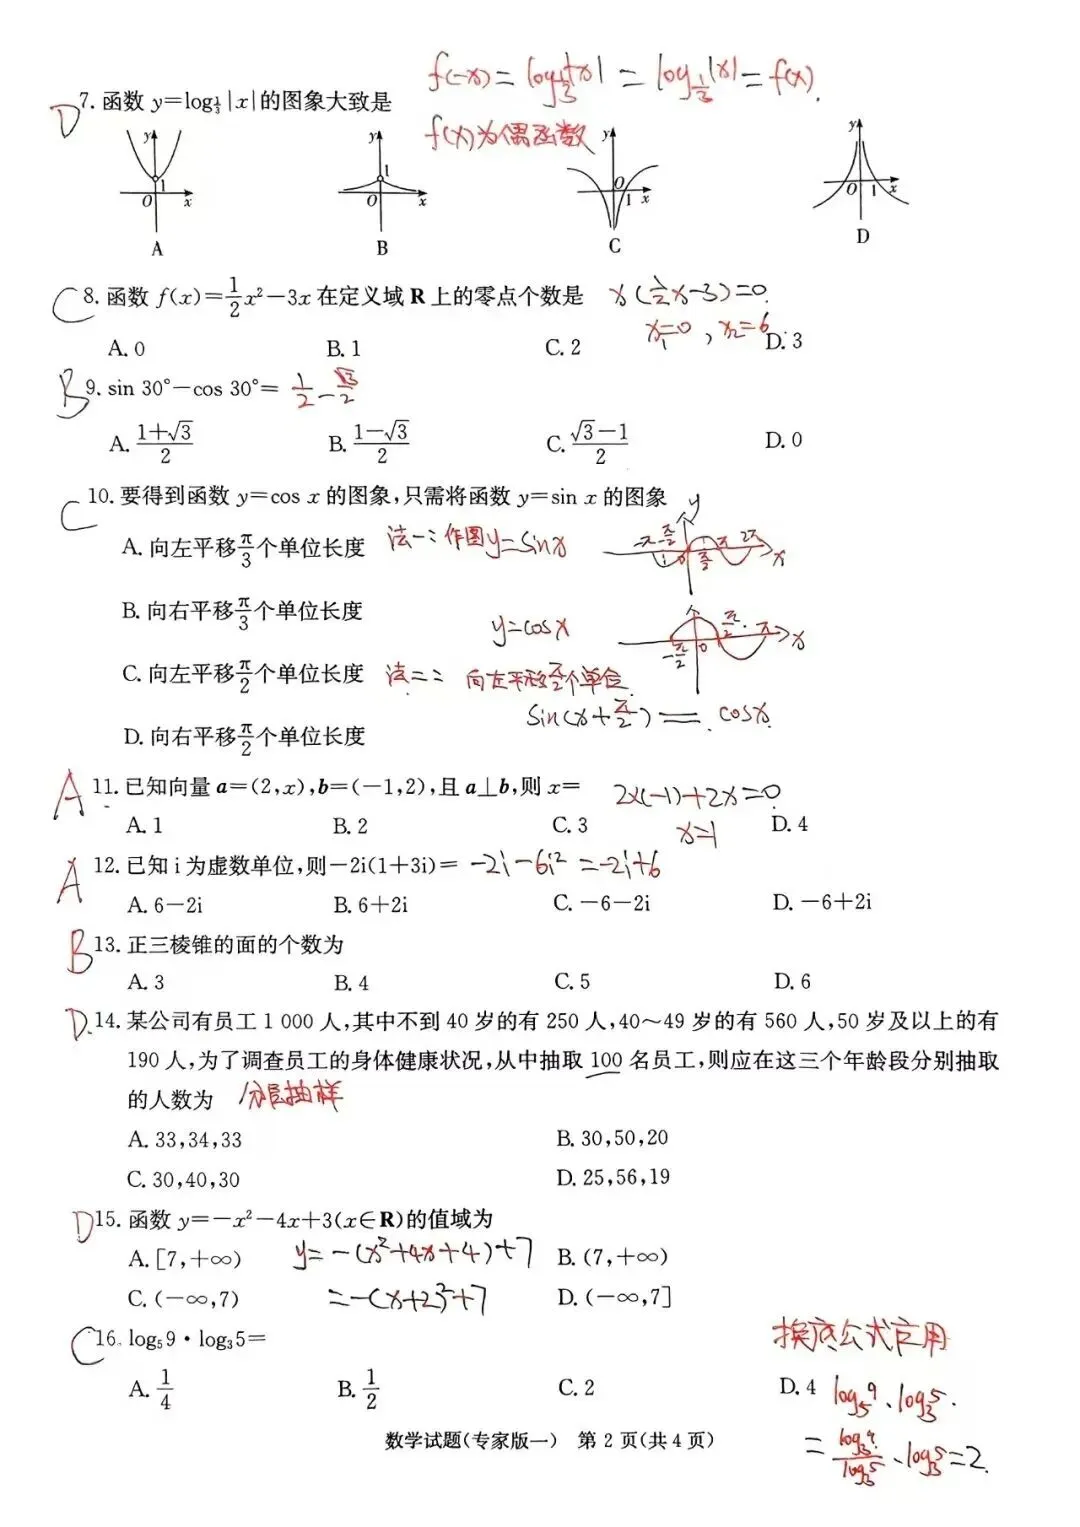 f(-x)=log_{1/3}|-x|=log_{1/3}|x|=f(x).
D 7. 函数 y=log_{1/3}|x|的图象大致是
f(x)为偶函数
y 1 O x A
y 1 O x B
y O 1 x C
y O 1 x D
C 8. 函数 f(x)=\frac{1}{2}x²-3x 在定义域 R 上的零点个数是 x(\frac{1}{2}x-3)=0.
x₁=0, x₂=6
A. 0 B. 1 C. 2 D. 3
B 9. sin 30°-cos 30°= \frac{1}{2}-\frac{√3}{2}
A. \frac{1+√3}{2} B. \frac{1-√3}{2} C. \frac{√3-1}{2} D. 0
C 10. 要得到函数 y=cos x 的图象,只需将函数 y=sin x 的图象
A. 向左平移\frac{π}{3}个单位长度 法一:作图y=sinx
y -π -\frac{π}{2} 0 \frac{π}{2} π 2π x
B. 向右平移\frac{π}{3}个单位长度
y=cosx -\frac{π}{2} 0 \frac{π}{2} π x
C. 向左平移\frac{π}{2}个单位长度 法二: 向左平移\frac{π}{2}个单位
sin(x+\frac{π}{2})=cosx
D. 向右平移\frac{π}{2}个单位长度
A 11. 已知向量 a=(2,x),b=(-1,2),且 a⊥b,则 x= 2×(-1)+2x=0
x=1
A. 1 B. 2 C. 3 D. 4
A 12. 已知 i 为虚数单位,则-2i(1+3i)= -2i-6i²=-2i+6
A. 6-2i B. 6+2i C. -6-2i D. -6+2i
B 13. 正三棱锥的面的个数为
A. 3 B. 4 C. 5 D. 6
D. 14. 某公司有员工 1 000 人,其中不到 40 岁的有 250 人,40～49 岁的有 560 人,50 岁及以上的有
190 人,为了调查员工的身体健康状况,从中抽取 100 名员工,则应在这三个年龄段分别抽取
的人数为 分层抽样
A. 33,34,33 B. 30,50,20
C. 30,40,30 D. 25,56,19
D 15. 函数 y=-x²-4x+3(x∈R)的值域为
A. [7,+∞) y=-(x²+4x+4)+7 B. (7,+∞)
C. (-∞,7) =-(x+2)²+7 D. (-∞,7]
C 16. log₅9·log₃5=
换底公式应用
A. \frac{1}{4} B. \frac{1}{2} C. 2 D. 4
log₅9·log₃5.
=\frac{log₃9}{log₃5}·log₃5=2.
数学试题(专家版一) 第 2 页(共 4 页)